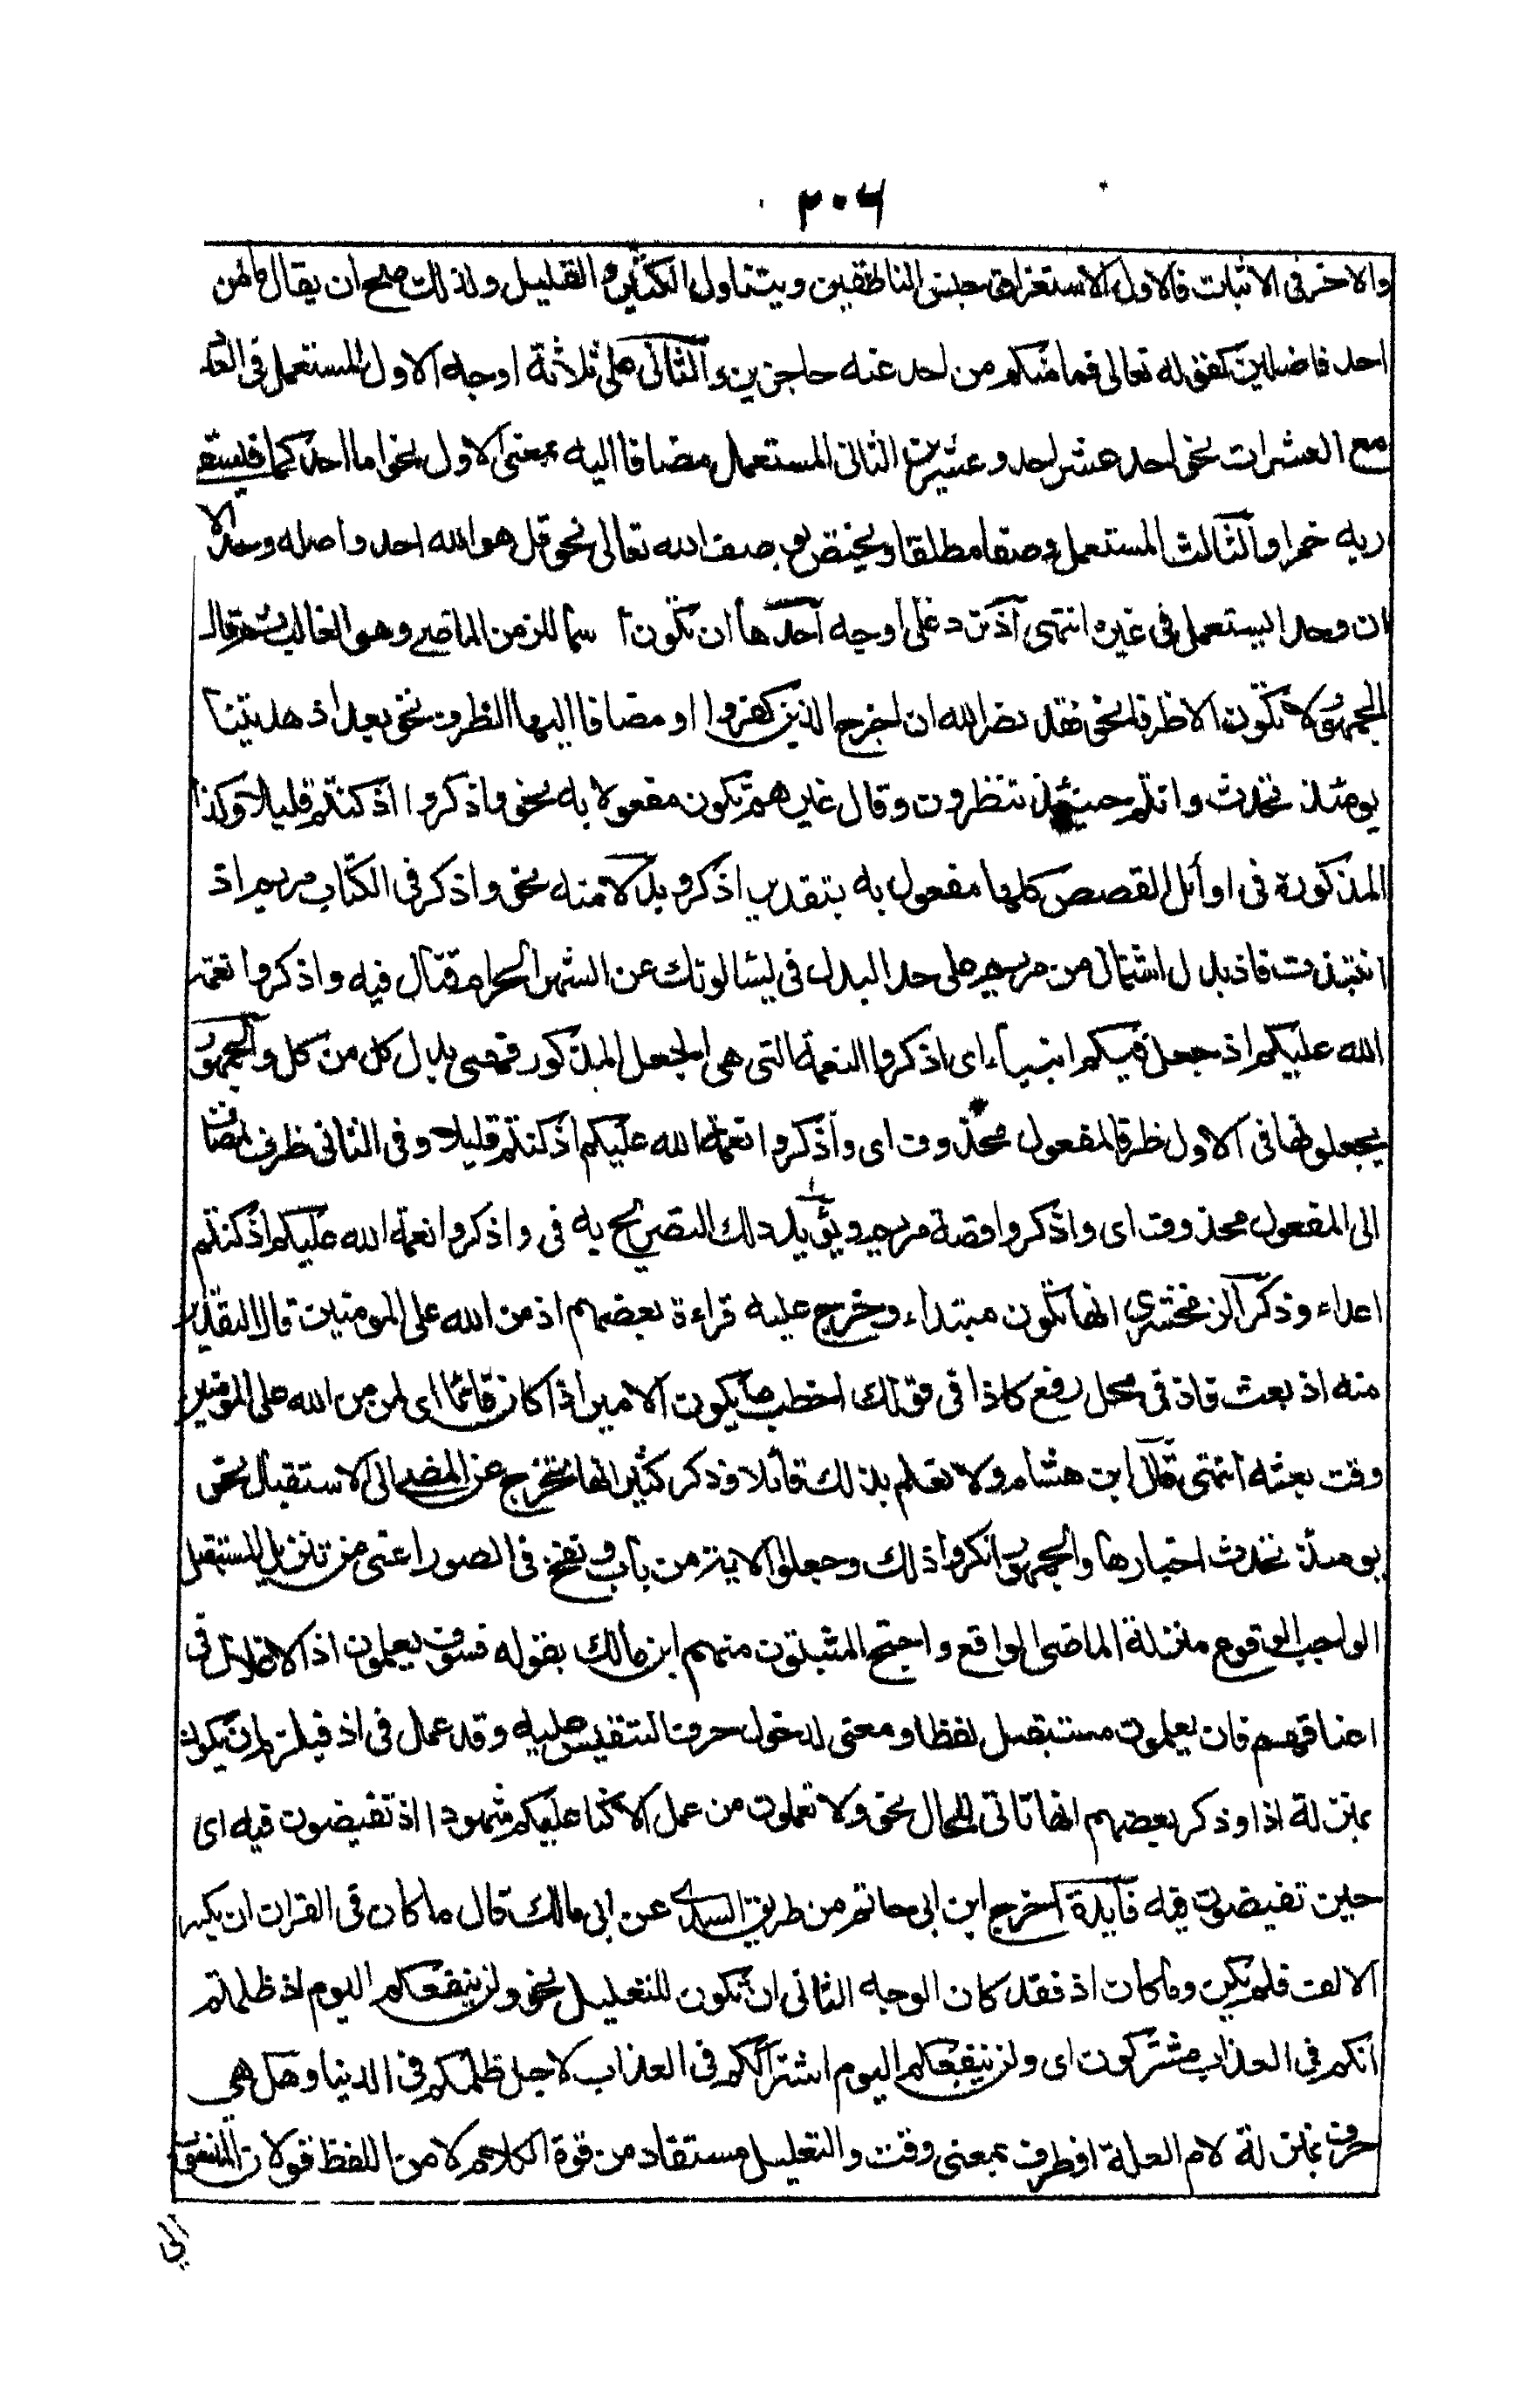 ٢٠٦
والاخر فى الاثبات فالاول لاستغراق جنس الناطقين ويتناول الكثير والقليل ولذلك صح ان يقال ما من
احد فاضلين كقوله تعالى فما منكم من احد عنه حاجزين والثانى على ثلاثة اوجه الاول المستعمل فى العد
مع العشرات نحو احد عشر احد وعشرين الثانى المستعمل مضافا اليه بمعنى الاول نحو اما احدكما فيسقى
ربه خمرا والثالث المستعمل وصفا مطلقا ويختص بوصف الله تعالى نحو قل هو الله احد واصله وحد الا
ان وحدا يستعمل فى غيره انتهى اذ ترد على اوجه احدها ان تكون اسما للزمن الماضى وهو الغالب ثم قال
الجمهور لا تكون الا ظرفا نحو فقد نصره الله اذ اخرجه الذين كفروا او مضافا اليها الظرف نحو بعد اذ هديتنا
يومئذ تحدث وانتم حينئذ تنظرون وقال غيرهم تكون مفعولا به نحو واذكروا اذ كنتم قليلا وكذا
المذكورة فى اوائل القصص كلها مفعول به بتقدير اذكر وبدلا منه نحو واذكر فى الكتاب مريم اذ
انتبذت فاذ بدل اشتمال من مريم على حد البدل فى يسألونك عن الشهر الحرام قتال فيه واذكروا نعمة
الله عليكم اذ جعل فيكم انبياء اى اذكروا النعمة التى هى الجعل المذكور فهى بدل كل من كل والجمهور
يجعلونها فى الاول ظرفا لمفعول محذوف اى واذكروا نعمة الله عليكم اذ كنتم قليلا وفى الثانى ظرف لمضاف
الى المفعول محذوف اى واذكروا قصة مريم ويؤيد ذلك التصريح به فى واذكروا نعمة الله عليكم اذ كنتم
اعداء وذكر الزمخشرى انها تكون مبتداء وخرج عليه قراءة بعضهم اذ من الله على المومنين قال التقدير
منه اذ بعث فاذ فى محل رفع كاذا فى قولك اخطب ما يكون الامير اذا كان قائما اى لمن من الله على المومنين
وقت بعثه انتهى قال ابن هشام ولا نعلم بذلك قائلا وذكر كثير انها تخرج عن المضى الى الاستقبال نحو
يومئذ تحدث اخبارها والجمهور انكروا ذلك وجعلوا الاية من باب ونفخ فى الصور اعنى من تنزيل المستقبل
الواجب الوقوع منزلة الماضى الواقع واحتج المثبتون منهم ابن مالك بقوله فسوف يعلمون اذ الاغلال فى
اعناقهم فان يعلمون مستقبل لفظا ومعنى لدخول حرف التنفيس عليه وقد عمل فى اذ فيلزم ان يكون
بمنزلة اذا وذكر بعضهم انها تاتى للحال نحو ولا تعملون من عمل الا كنا عليكم شهودا اذ تفيضون فيه اى
حين تفيضون فيه فآيدة اخرج ابن ابى حاتم من طريق السدى عن ابى مالك قال ما كان فى القران ان بكسر
الالف فلم يكن وما كان اذ فقد كان الوجه الثانى ان تكون للتعليل نحو ولن ينفعكم اليوم اذ ظلمتم
انكم فى العذاب مشتركون اى ولن ينفعكم اليوم اشتراككم فى العذاب لاجل ظلمكم فى الدنيا وهل هى
حرف بمنزلة لام العلة او ظرف بمعنى وقت والتعليل مستفاد من قوة الكلام لا من اللفظ قولان المنسوب
الى